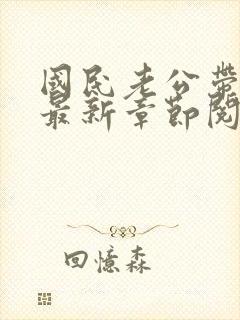 國民老公帶
最新章節閱
回憶森